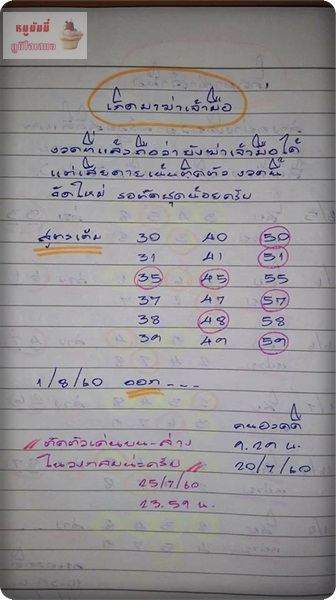 หมูบินนี่
กูมีโอเลขวง
เกิดมาฆ่าเจ้ามือ
งวดที่แล้วถือว่ายังฆ่าเจ้ามือได้
แต่เสียดายเน้นผิดตัว งวดนี้
จัดใหม่ รอตัดชุดน้อยครับ
สูตรเดิม 30 40 50
31 41 51
35 45 55
37 47 57
38 48 58
39 49 59
1/8/60 ออก - - -
คนอวดดี
ตัดตัวเด่นบน-ล่าง 9.29 น.
ในวงกลมนะครับ 20/7/60
25/7/60
23.59 น.